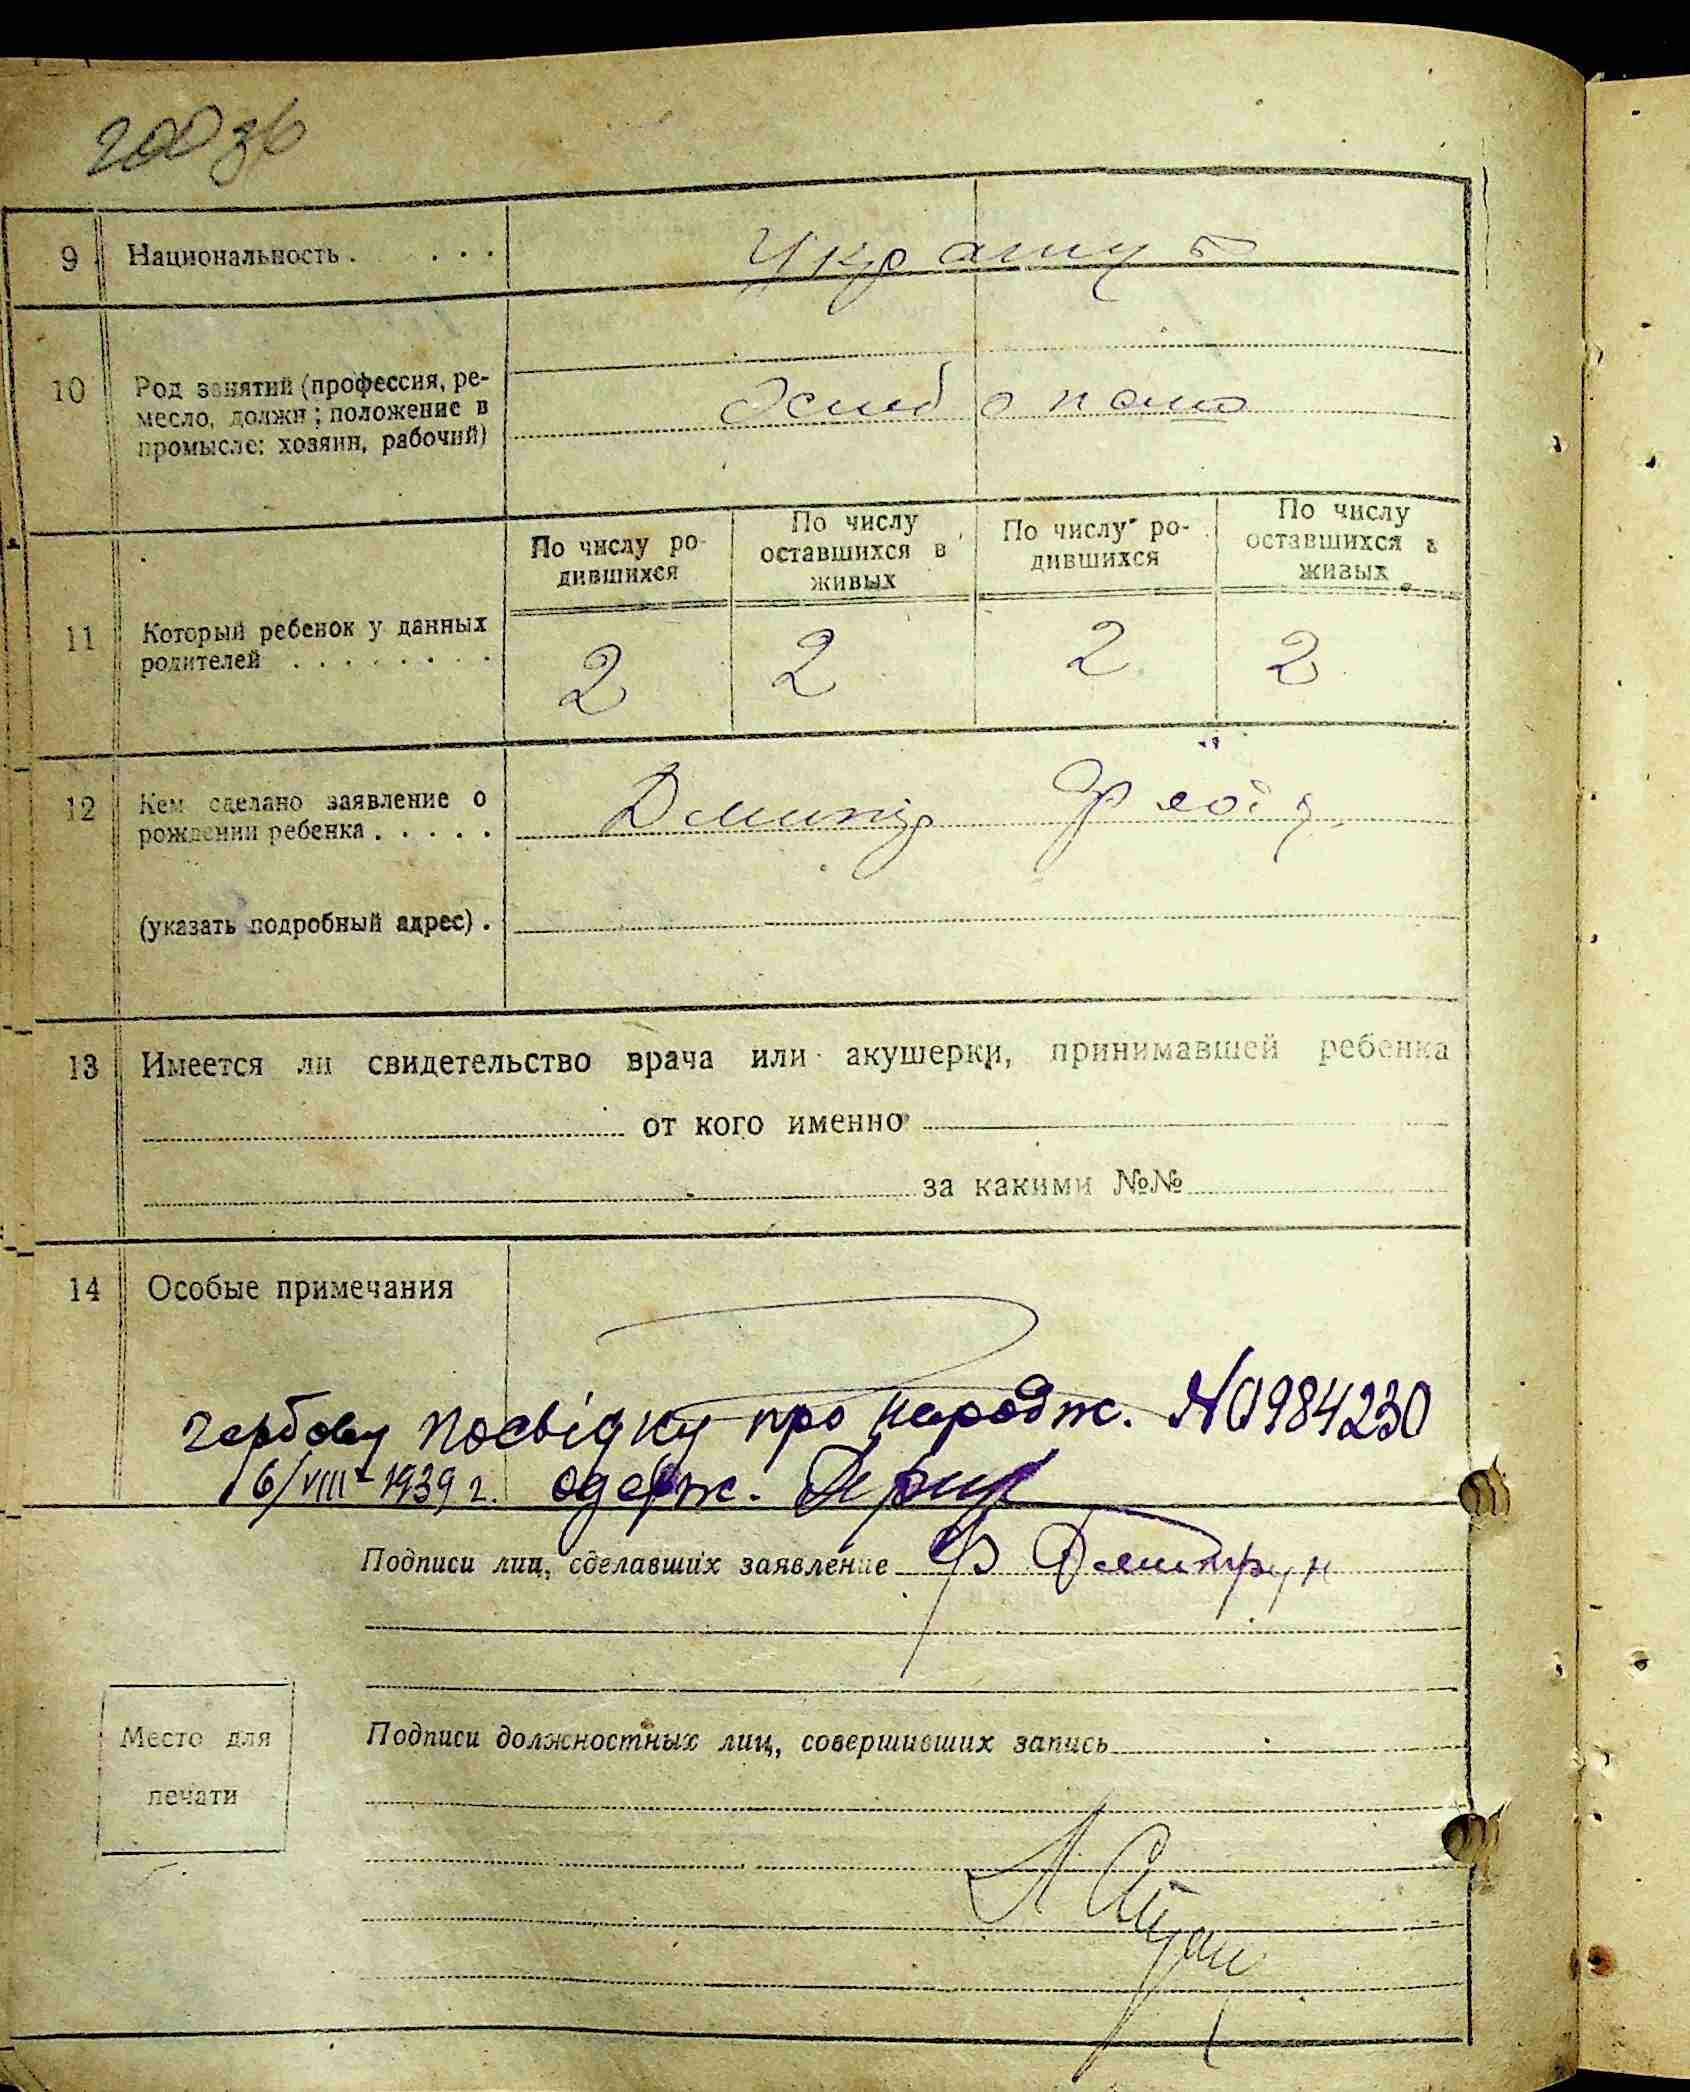 200 зв
9 Национальность . . . .
10 Род занятий (профессия, ре-
месло, должн; положение в
промысле: хозяин, рабочий)
По числу ро-
дившихся
По числу
оставшихся в
живых
По числу ро-
дившихся
По числу
оставшихся в
живых
11 Который ребенок у данных
родителей . . . . . . . .
2 2 2 2
12 Кем сделано заявление о
рождении ребенка . . . . .
(указать подробный адрес) .
13 Имеется ли свидетельство врача или акушерки, принимавшей ребенка
от кого именно
за какими №№
14 Особые примечания
гербову посвідку про народж. № 0984230
16/VIII-1939 г. одерж.
Подписи лиц, сделавших заявление
Подписи должностных лиц, совершивших запись
Место для
печати